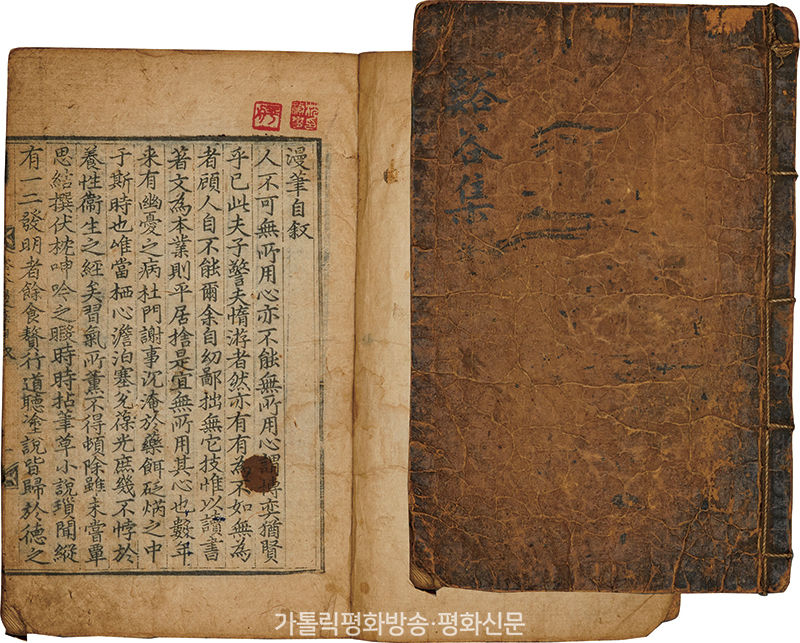 漫筆自叙
人不可無所用心亦不能無所用心謂博奕猶賢
乎已此夫子警夫惰游者然亦有有為不如無為
者顧人自不能爾余自幼鄙拙無它技惟以讀書
著文為本業則平居捨是宜無所用其心也數年
来有幽憂之病杜門謝事沉淹於藥餌砭焫之中
于斯時也唯當栖心澹泊塞兊葆光庶幾不悖於
養性衛生之經矣習氣所薰不得頓除雖未嘗覃
思結撰伏枕呻吟之暇時時拈筆草小說瑣聞縱
有一二發明者餘食贅行道聽塗說皆歸於德之
谿谷集
가톨릭평화방송·평화신문